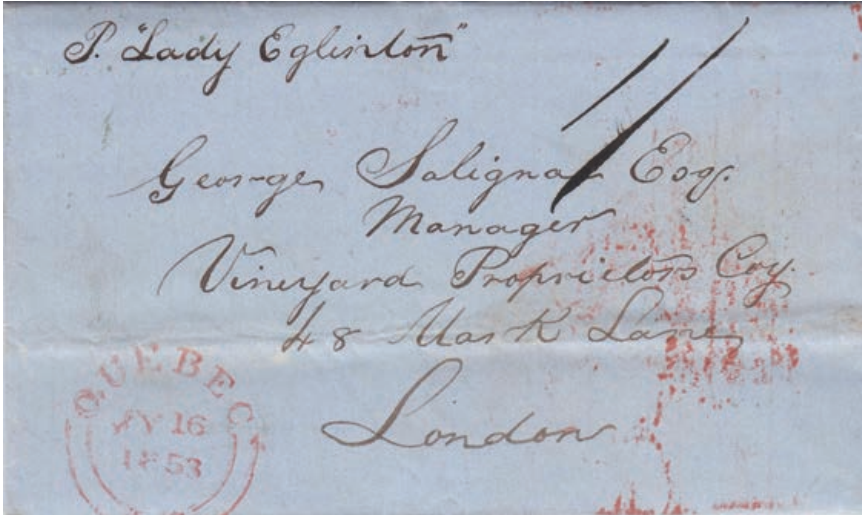 P. "Lady Eglinton"
1/
George Salignac Esq.
Manager
Vineyard Proprietors Coy.
48 Mark Lane
London
QUEBEC
16
1853